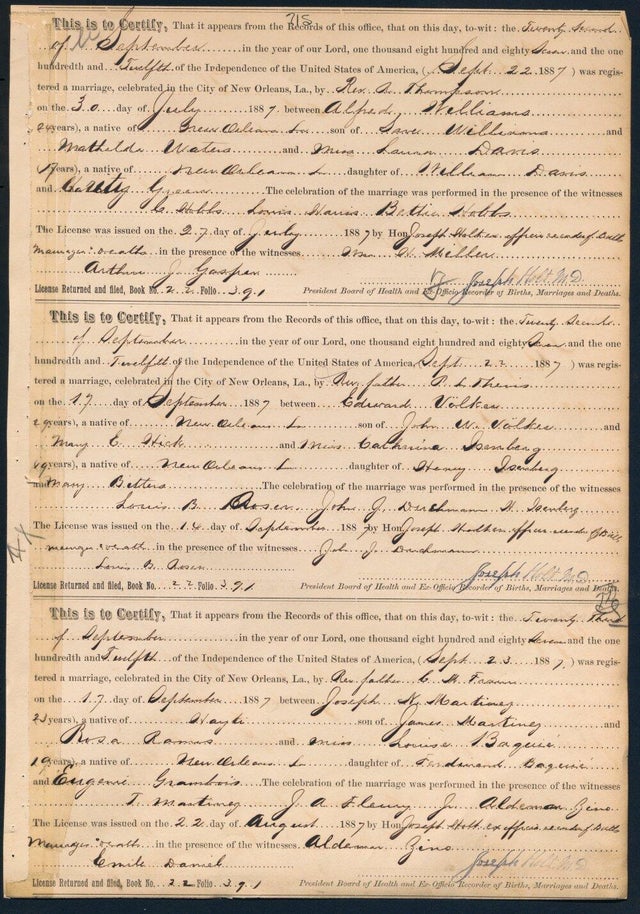 718
This is to Certify, That it appears from the Records of this office, that on this day, to-wit: the Twenty Second
of September in the year of our Lord, one thousand eight hundred and eighty Seven and the one
hundredth and Twelfth of the Independence of the United States of America, (Sept 22 1887) was regis-
tered a marriage, celebrated in the City of New Orleans, La., by Rev. A Thompson
on the 30 day of July 1887 between Alfred Williams
years), a native of New Orleans La son of Williams and
Mathilda Waters and Miss Laura Davis
years), a native of New Orleans La daughter of William Davis
and Green The celebration of the marriage was performed in the presence of the witnesses
Hobbs Louis Harris Bettie Hobbs
The License was issued on the 27 day of July 1887 by Hon Joseph Holt ex officio recorder of Births
marriages & deaths in the presence of the witnesses Miller
Arthur J. Gaspar Joseph Holt M.D.
License Returned and filed, Book No. 22 Folio 391 President Board of Health and Ex-Officio Recorder of Births, Marriages and Deaths.
This is to Certify, That it appears from the Records of this office, that on this day, to-wit: the Twenty Second
of September in the year of our Lord, one thousand eight hundred and eighty Seven and the one
hundredth and Twelfth of the Independence of the United States of America, (Sept 22 1887) was regis-
tered a marriage, celebrated in the City of New Orleans, La., by Rev. father P. L. Thevis
on the 17 day of September 1887 between Edward Volker
years), a native of New Orleans La son of John W. Volker and
Mary E. Hick and Miss Catharina Isenberg
19 years), a native of New Orleans La daughter of Henry Isenberg
and Mary Betters The celebration of the marriage was performed in the presence of the witnesses
Louis B. Rosen John J. H. Isenberg
The License was issued on the 14 day of September 1887 by Hon Joseph Holt ex officio recorder of Births
marriages & deaths in the presence of the witnesses Joh J.
Louis B. Rosen Joseph Holt M.D.
License Returned and filed, Book No. 22 Folio 391 President Board of Health and Ex-Officio Recorder of Births, Marriages and Deaths.
This is to Certify, That it appears from the Records of this office, that on this day, to-wit: the Twenty third
of September in the year of our Lord, one thousand eight hundred and eighty Seven and the one
hundredth and Twelfth of the Independence of the United States of America, (Sept. 23 1887) was regis-
tered a marriage, celebrated in the City of New Orleans, La., by Rev father C. H.
on the 17 day of September 1887 between Joseph N. Martinez
23 years), a native of Hayti son of James Martinez and
Rosa Ramos and Miss Louise Baquié
19 years), a native of New Orleans La daughter of Ferdinand Baquié
and Eugenie Grambois The celebration of the marriage was performed in the presence of the witnesses
T. Martinez J. A. Fleury J. Alderman Zeno
The License was issued on the 22 day of August 1887 by Hon Joseph Holt ex officio recorder of Births
Marriages & deaths in the presence of the witnesses. Alderman Zeno
Emile Daniel Joseph Holt M.D.
License Returned and filed, Book No. 22 Folio 391 President Board of Health and Ex-Officio Recorder of Births, Marriages and Deaths.